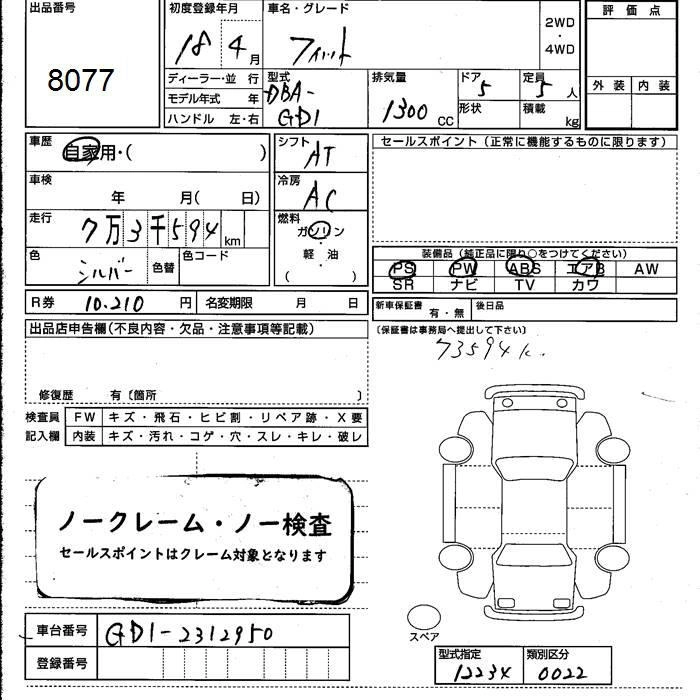 出品番号
8077
初度登録年月
18 4月
車名・グレード
フィット
2WD
・
4WD
評価点
外装 内装
ディーラー・並 行
モデル年式 年
ハンドル 左・右
型式
DBA-
GD1
排気量
1300 CC
ドア
5
形状
定員
5人
積載
kg
車歴
自家用・( )
車検
年 月( 日)
走行
7万3千594km
色
シルバー
色替
色コード
シフト
AT
冷房
AC
燃料
ガソリン
・
軽・油
( )
セールスポイント(正常に機能するものに限ります)
装備品(純正品に限り○をつけてください)
PS PW ABS エアB AW
SR ナビ TV カワ
R券 10.210 円 名変期限 月 日
新車保証書 有・無 後日品
(保証書は事務局へ提出して下さい)
73594k.
出品店申告欄(不良内容・欠品・注意事項等記載)
修復歴 有〔箇所 〕
検査員 FW キズ・飛石・ヒビ割・リペア跡・X要
記入欄 内装 キズ・汚れ・コゲ・穴・スレ・キレ・破レ
ノークレーム・ノー検査
セールスポイントはクレーム対象となります
スペア
車台番号 GD1-2312950
登録番号
型式指定 類別区分
12234 0022